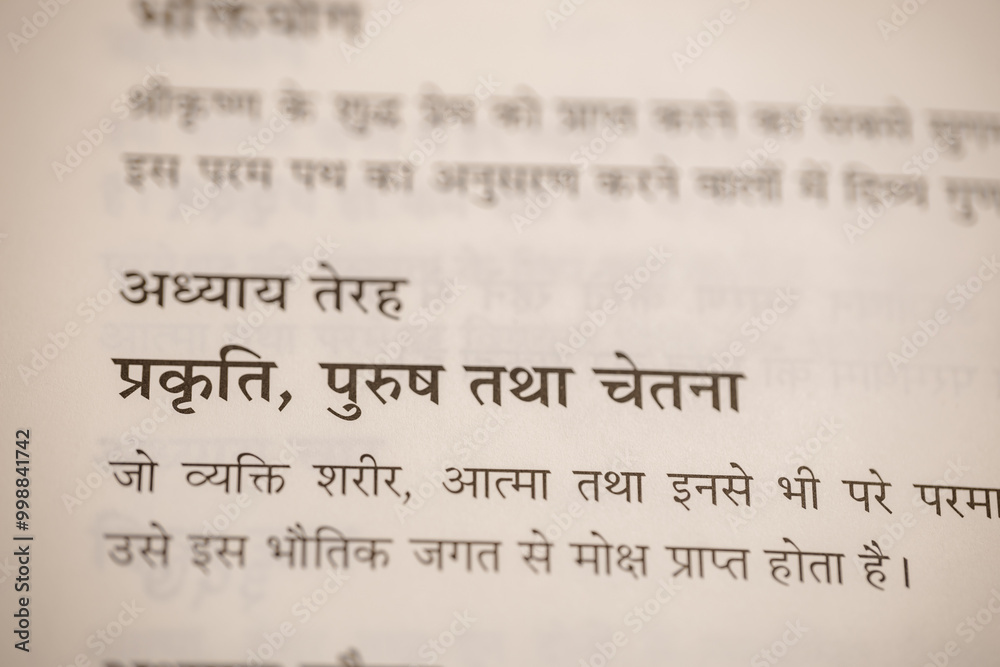 भक्तियोग
श्रीकृष्ण के शुद्ध प्रेम को प्राप्त करने का सबसे
इस परम पथ का अनुसरण करने वालों में दिव्य गुण
अध्याय तेरह
प्रकृति, पुरुष तथा चेतना
जो व्यक्ति शरीर, आत्मा तथा इनसे भी परे परमा
उसे इस भौतिक जगत से मोक्ष प्राप्त होता है।
Adobe Stock | #998841742